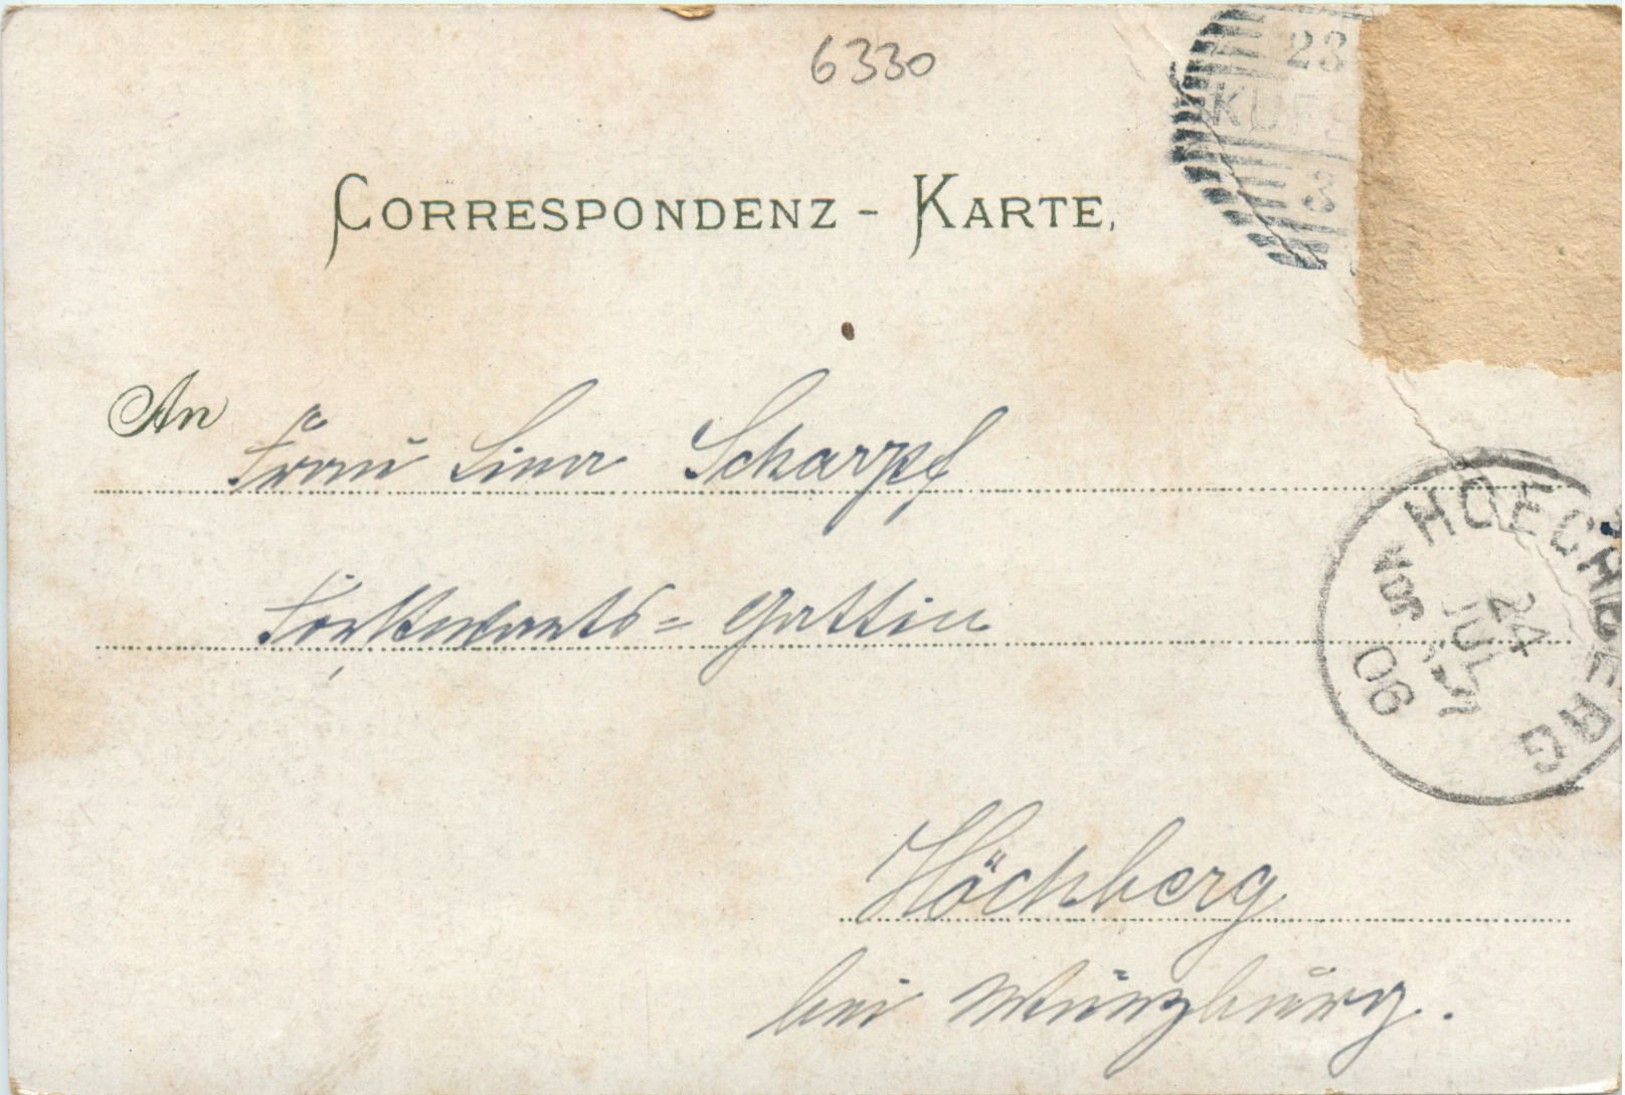 6330
23
KUFS
3
CORRESPONDENZ - KARTE.
An Frau Lina Scharpf
Forstwarts = Gattin
HOECHBERG
24 JUL
VOR
06
Höchberg
bei Würzburg.